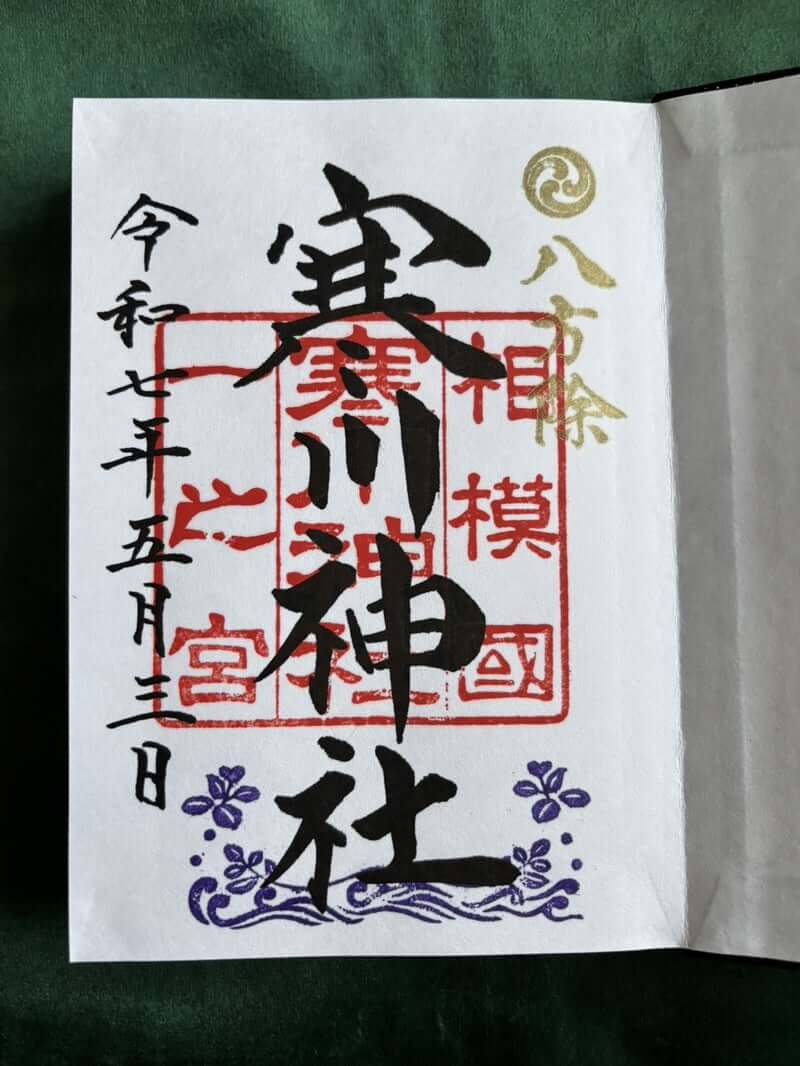 八方除
相模國
寒川神社
一之宮
寒川神社
令和七年五月三日